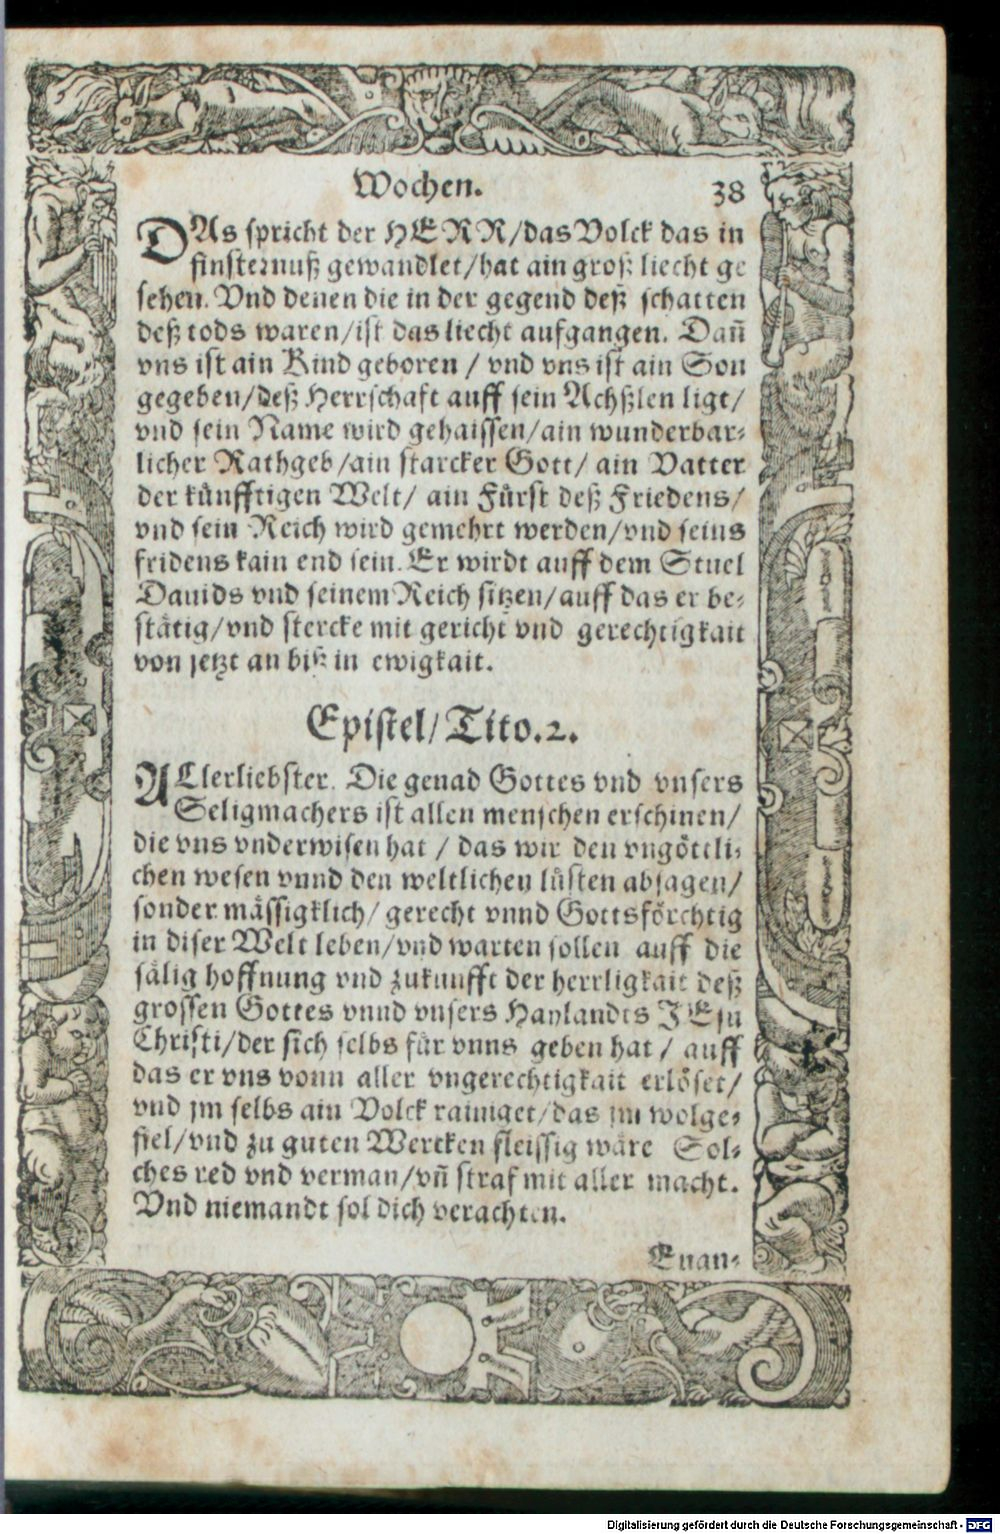 Wochen. 38
DAs spricht der HERR/das Volck das in
finsternuß gewandlet/hat ain groß liecht ge
sehen. Vnd denen die in der gegend deß schatten
deß tods waren/ist das liecht aufgangen. Dañ
vns ist ain Kind geboren / vnd vns ist ain Son
gegeben/deß Herrschaft auff sein Achßlen ligt/
vnd sein Name wird gehaissen/ain wunderbar-
licher Rathgeb/ain starcker Gott/ ain Vatter
der künfftigen Welt/ ain Fürst deß Friedens/
vnd sein Reich wird gemehrt werden/vnd seins
fridens kain end sein. Er wirdt auff dem Stuel
Dauids vnd seinem Reich sitzen/auff das er be-
stätig/vnd stercke mit gericht vnd gerechtigkait
von jetzt an biß in ewigkait.
Epistel/Tito.2.
ALlerliebster. Die genad Gottes vnd vnsers
Seligmachers ist allen menschen erschinen/
die vns vnderwisen hat / das wir den vngöttli-
chen wesen vnnd den weltlichen lüsten absagen/
sonder mässigklich/ gerecht vnnd Gottsförchtig
in diser Welt leben/vnd warten sollen auff die
sälig hoffnung vnd zukunfft der herrligkait deß
grossen Gottes vnnd vnsers Haylandts JEsu
Christi/der sich selbs für vnns geben hat / auff
das er vns vonn aller vngerechtigkait erlöset/
vnd jm selbs ain Volck rainiget/das jm wolge-
fiel/vnd zu guten Wercken fleissig wäre Sol-
ches red vnd verman/vñ straf mit aller macht.
Vnd niemandt sol dich verachten.
Euan-
Digitalisierung gefördert durch die Deutsche Forschungsgemeinschaft - DFG